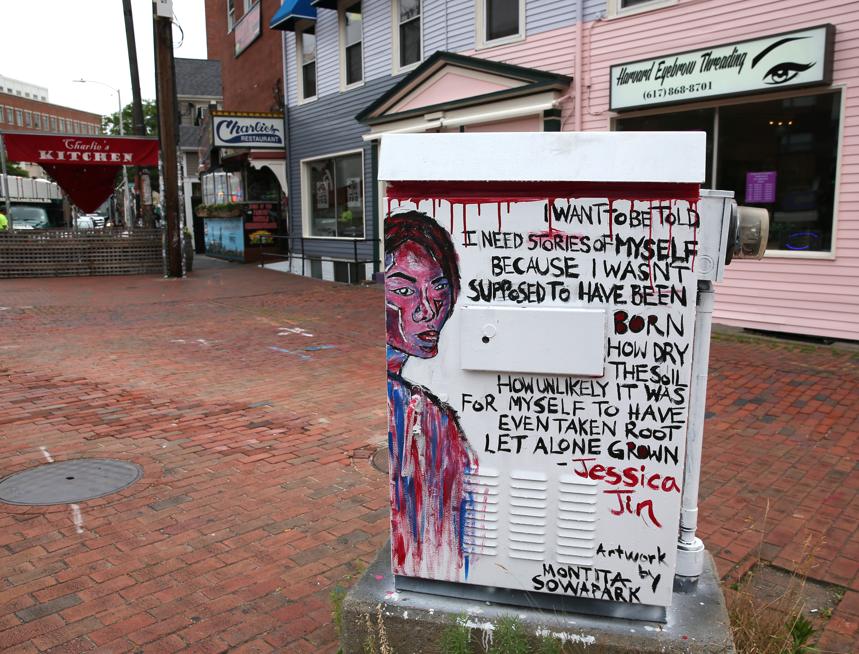 Harvard Eyebrow Threading
(617) 868-8701
Charlie's
RESTAURANT
Charlie's
KITCHEN
I WANT TO BE TOLD
I NEED STORIES OF MYSELF
BECAUSE I WASN'T
SUPPOSED TO HAVE BEEN
BORN
HOW DRY
THE SOIL
HOW UNLIKELY IT WAS
FOR MYSELF TO HAVE
EVEN TAKEN ROOT
LET ALONE GROWN
-Jessica
Jin
Artwork
by
MONTITA
SOWAPARK